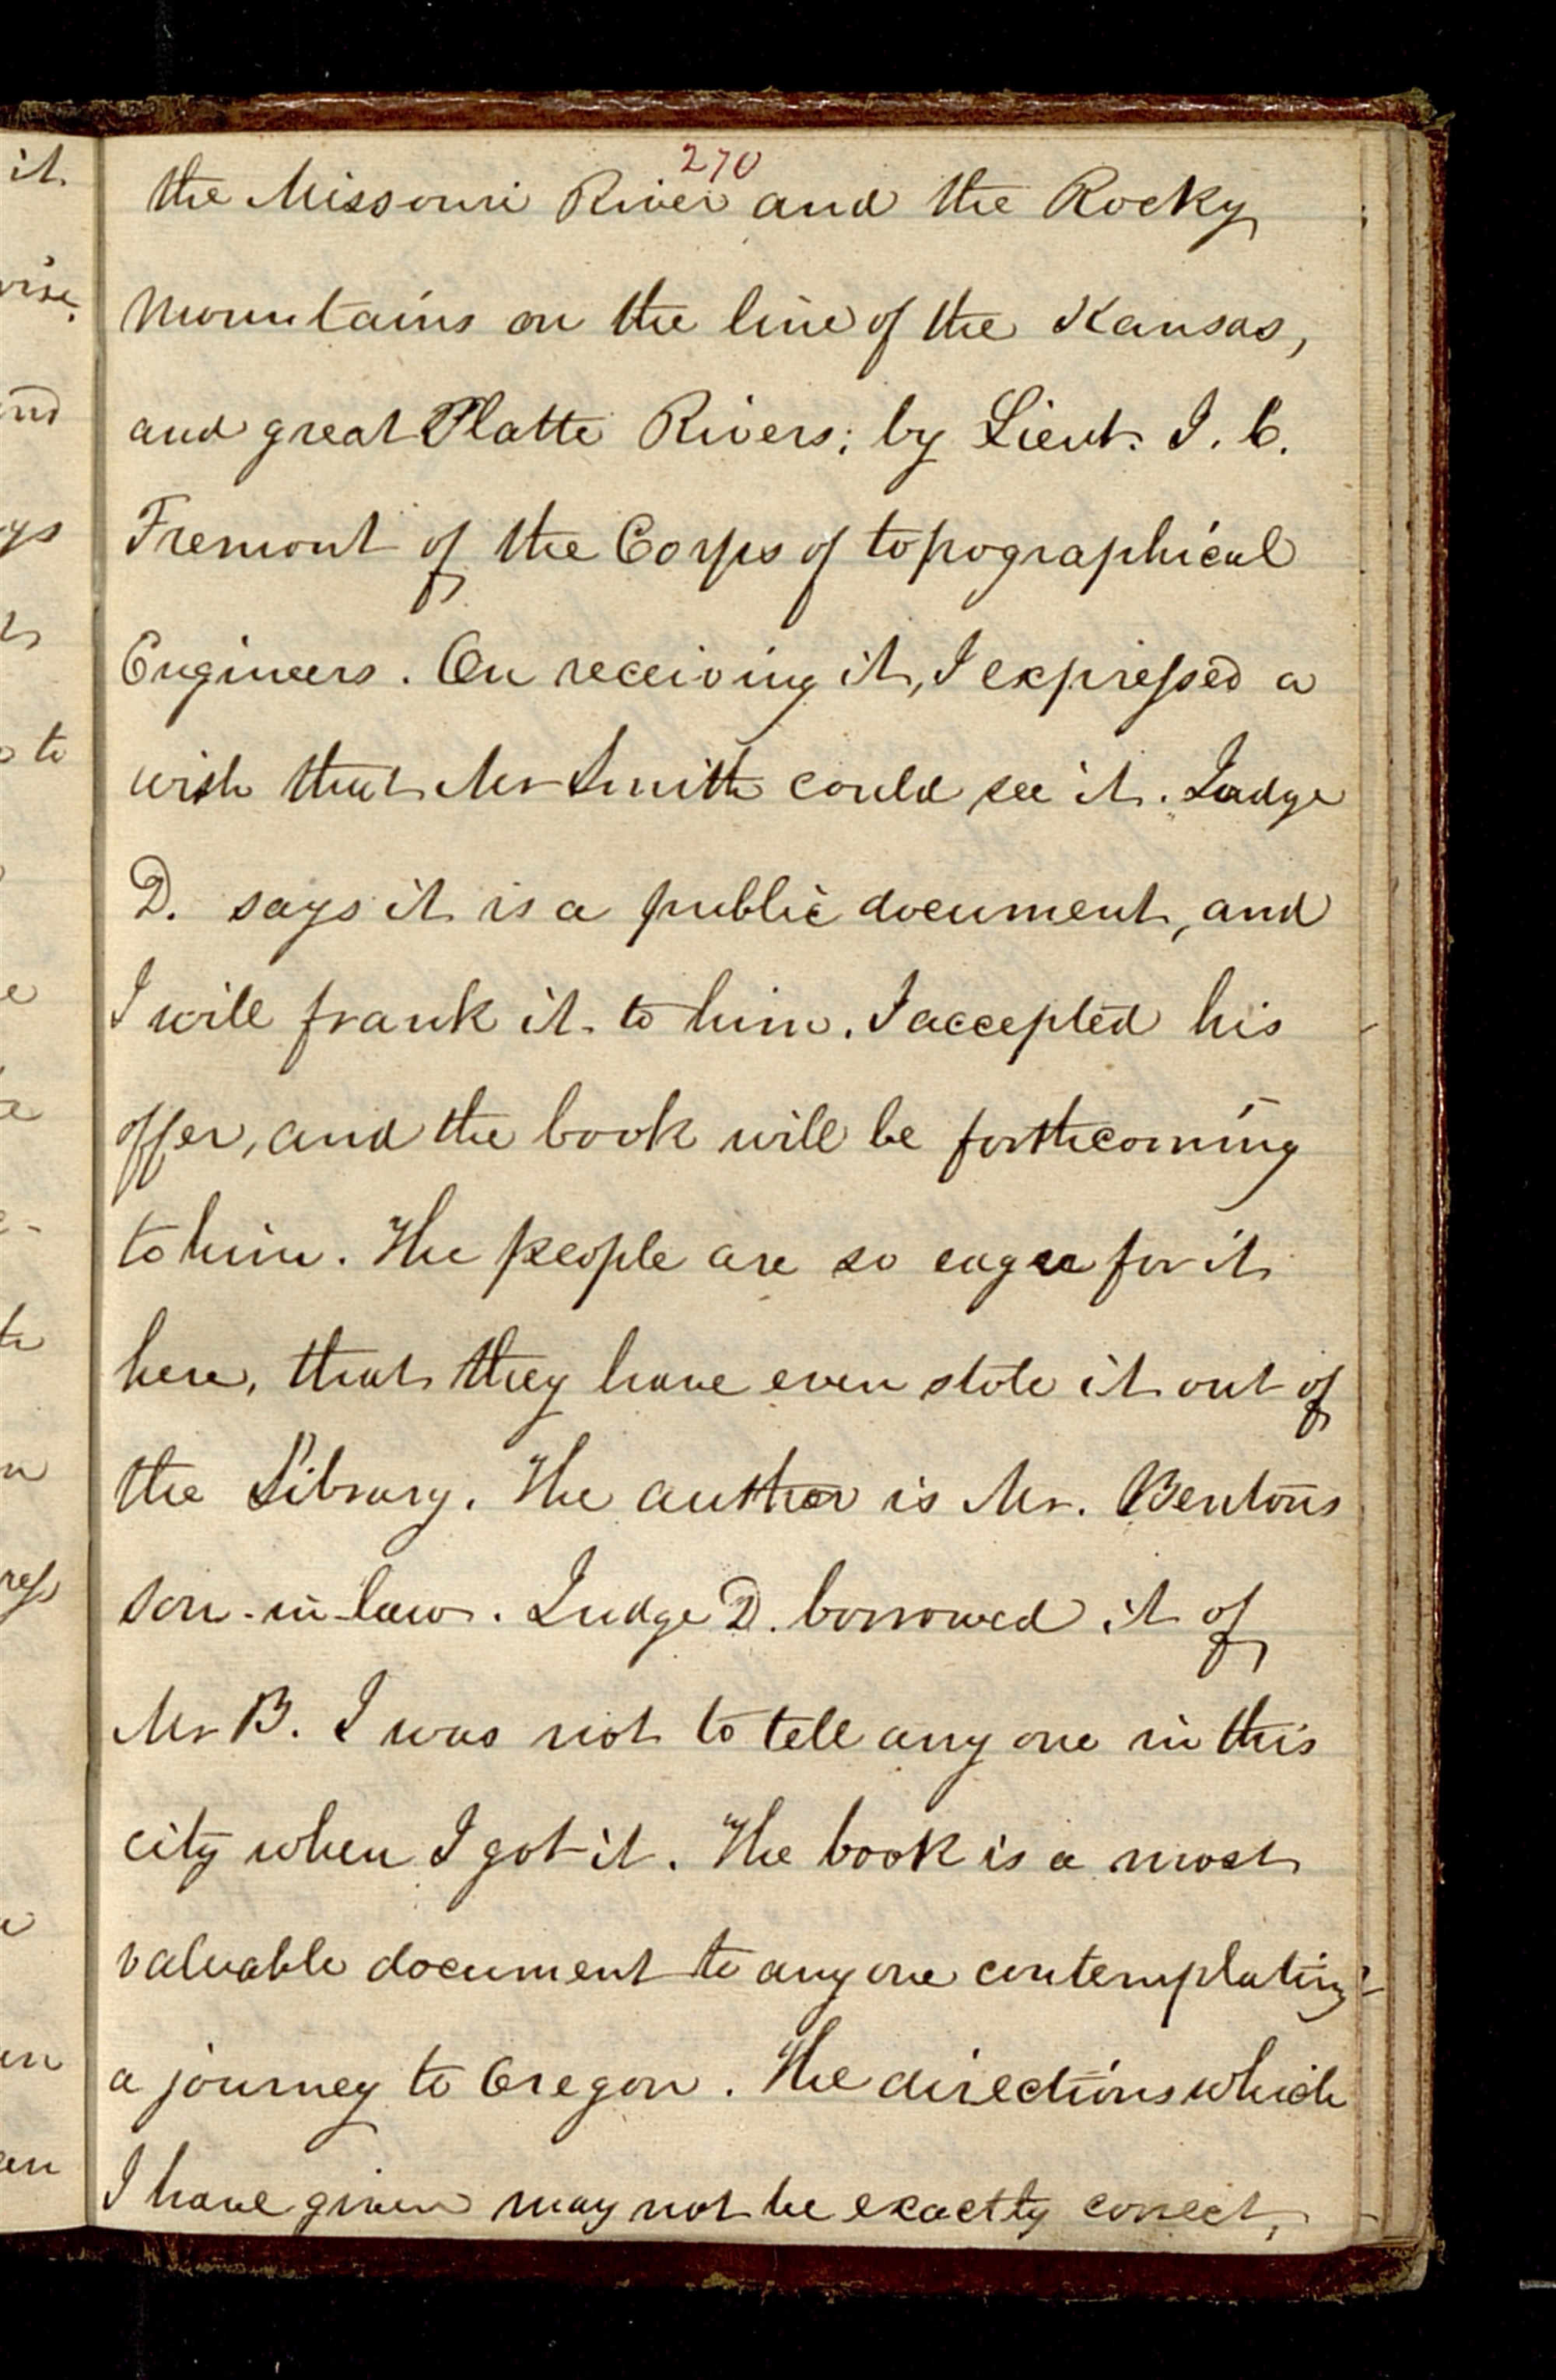 270
the Missouri River and the Rocky
Mountains on the line of the Kansas,
and great Platte Rivers; by Lieut. J. C.
Fremont of the Corps of topographical
Engineers. On receiving it, I expressed a
wish that Mr Smith could see it. Judge
D. says it is a public document, and
I will frank it to him. I accepted his
offer, and the book will be forthcoming
to him. The people are so eager for it
here, that they have even stole it out of
the Library. The author is Mr. Bentons
son-in-law. Judge D. borrowed it of
Mr B. I was not to tell any one in this
city when I got it. The book is a most
valuable document to any one contemplating
a journey to Oregon. The directions which
I have given may not be exactly correct,